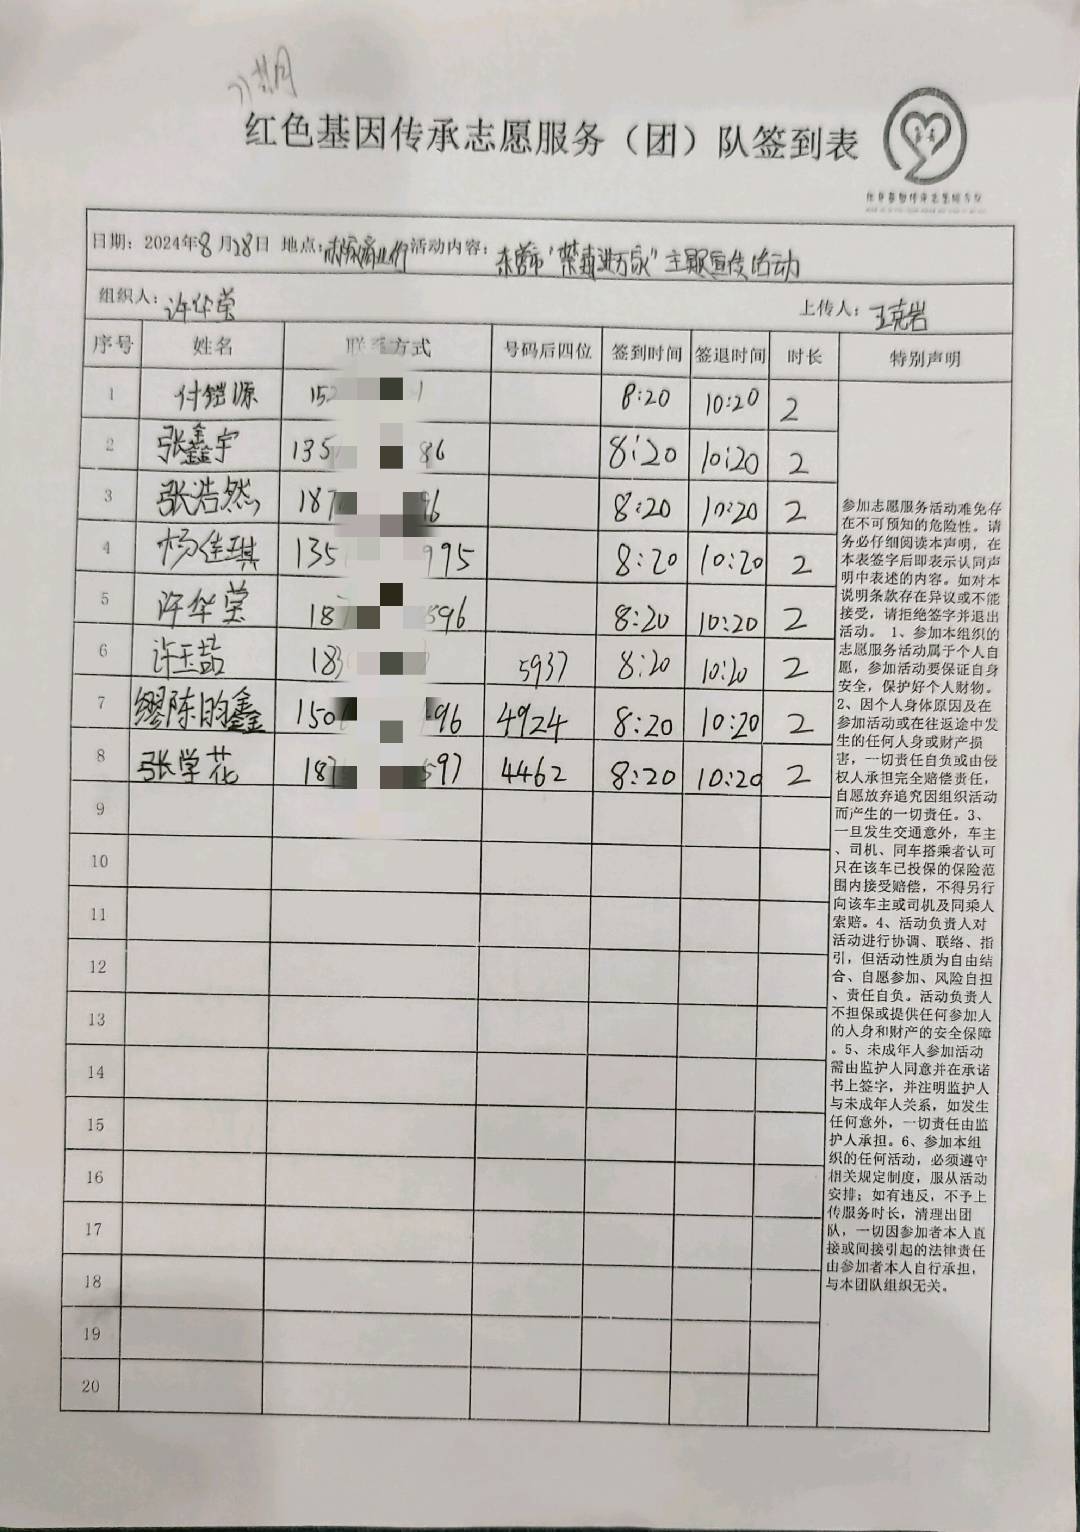 红色基因传承志愿服务（团）队签到表
日期：2024年8月18日 地点： 活动内容：东营市"禁毒进万家"主题宣传活动
组织人：许华莹 上传人：王克岩
序号 姓名 联系方式 号码后四位 签到时间 签退时间 时长 特别声明
1 付铠源 152 1 8:20 10:20 2
2 张鑫宇 135 86 8:20 10:20 2
3 张浩然 187 96 8:20 10:20 2
4 杨佳琪 135 995 8:20 10:20 2
5 许华莹 187 596 8:20 10:20 2
6 许玉喆 183 5937 8:20 10:20 2
7 缪陈昀鑫 150 96 4924 8:20 10:20 2
8 张学花 187 597 4462 8:20 10:20 2
9
10
11
12
13
14
15
16
17
18
19
20
参加志愿服务活动难免存
在不可预知的危险性。请
务必仔细阅读本声明，在
本表签字后即表示认同声
明中表述的内容。如对本
说明条款存在异议或不能
接受，请拒绝签字并退出
活动。 1、参加本组织的
志愿服务活动属于个人自
愿，参加活动要保证自身
安全，保护好个人财物。
2、因个人身体原因及在
参加活动或在往返途中发
生的任何人身或财产损
害，一切责任自负或由侵
权人承担完全赔偿责任，
自愿放弃追究因组织活动
而产生的一切责任。3、
一旦发生交通意外，车主
、司机、同车搭乘者认可
只在该车已投保的保险范
围内接受赔偿，不得另行
向该车主或司机及同乘人
索赔。4、活动负责人对
活动进行协调、联络、指
引，但活动性质为自由结
合、自愿参加、风险自担
、责任自负。活动负责人
不担保或提供任何参加人
的人身和财产的安全保障
。5、未成年人参加活动
需由监护人同意并在承诺
书上签字，并注明监护人
与未成年人关系，如发生
任何意外，一切责任由监
护人承担。6、参加本组
织的任何活动，必须遵守
相关规定制度，服从活动
安排；如有违反，不予上
传服务时长，清理出团
队，一切因参加者本人直
接或间接引起的法律责任
由参加者本人自行承担，
与本团队组织无关。